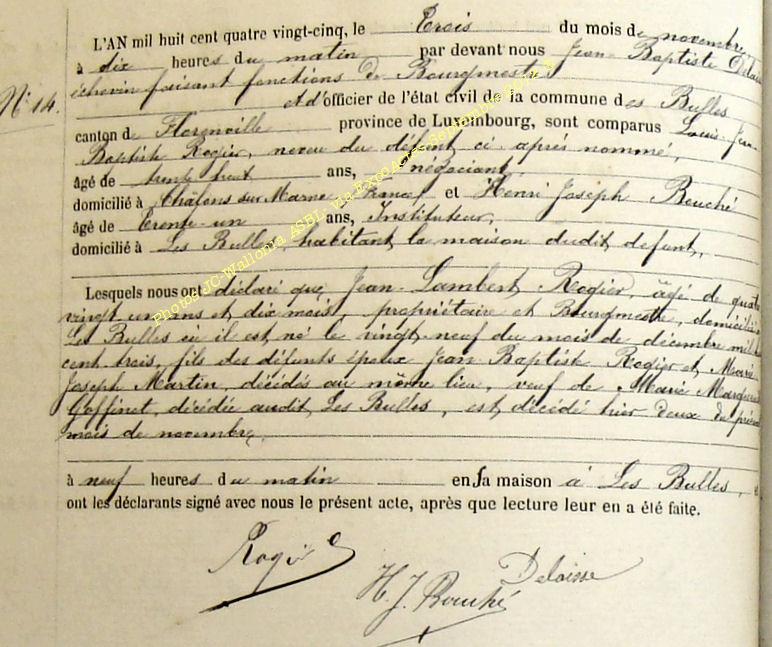 L'AN mil huit cent quatre vingt-cinq, le Trois du mois de novembre
à dix heures du matin par devant nous Jean-Baptiste
échevin faisant fonctions de Bourgmestre
N° 14.
et d'officier de l'état civil de la commune des Bulles
canton de Florenville province de Luxembourg, sont comparus Louis-Jean-
Baptiste Rogier, neveu du défunt ci-après nommé,
âgé de trente huit ans, négociant,
domicilié à Châlons sur Marne France, et Henri Joseph Bouché
âgé de Trente-un ans, Instituteur,
domicilié à Les Bulles, habitant la maison dudit défunt,
Lesquels nous ont déclaré que Jean-Lambert Rogier, âgé de quatre
vingt un ans et dix mois, propriétaire et Bourgmestre, domicilié à
Les Bulles où il est né le vingt-neuf du mois de décembre mil
cent trois, fils des défunts époux Jean-Baptiste Rogier et Marie
Joseph Martin, décédés au même lieu, veuf de Marie Marguerite
Goffinet, décédée audit Les Bulles, est décédé hier deux du présent
mois de novembre,
à neuf heures du matin en sa maison à Les Bulles,
ont les déclarants signé avec nous le présent acte, après que lecture leur en a été faite.
Rogier
Delaisse
H. J. Bouché